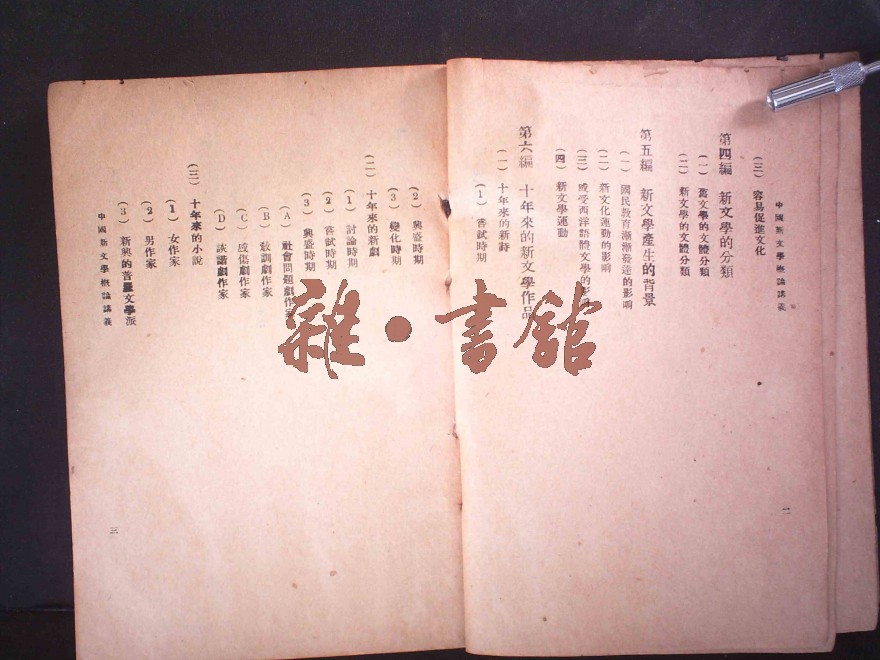 中國新文學槪論講義
（三） 容易促進文化
第四編 新文學的分類
（一） 舊文學的文體分類
（二） 新文學的文體分類
第五編 新文學產生的背景
（一） 國民教育漸漸發達的影響
（二） 新文化運動的影響
（三） 感受西洋語體文學的影
（四） 新文學運動
第六編 十年來的新文學作品
（一） 十年來的新詩
（1） 嘗試時期
二
（2） 興盛時期
（3） 變化時期
（二） 十年來的新劇
（1） 討論時期
（2） 嘗試時期
（3） 興盛時期
（A） 社會問題劇作家
（B） 敎訓劇作家
（C） 感傷劇作家
（D） 詼諧劇作家
（三） 十年來的小說
（1） 女作家
（2） 男作家
（3） 新興的普羅文學派
中國新文學槪論講義
三
雜·書館